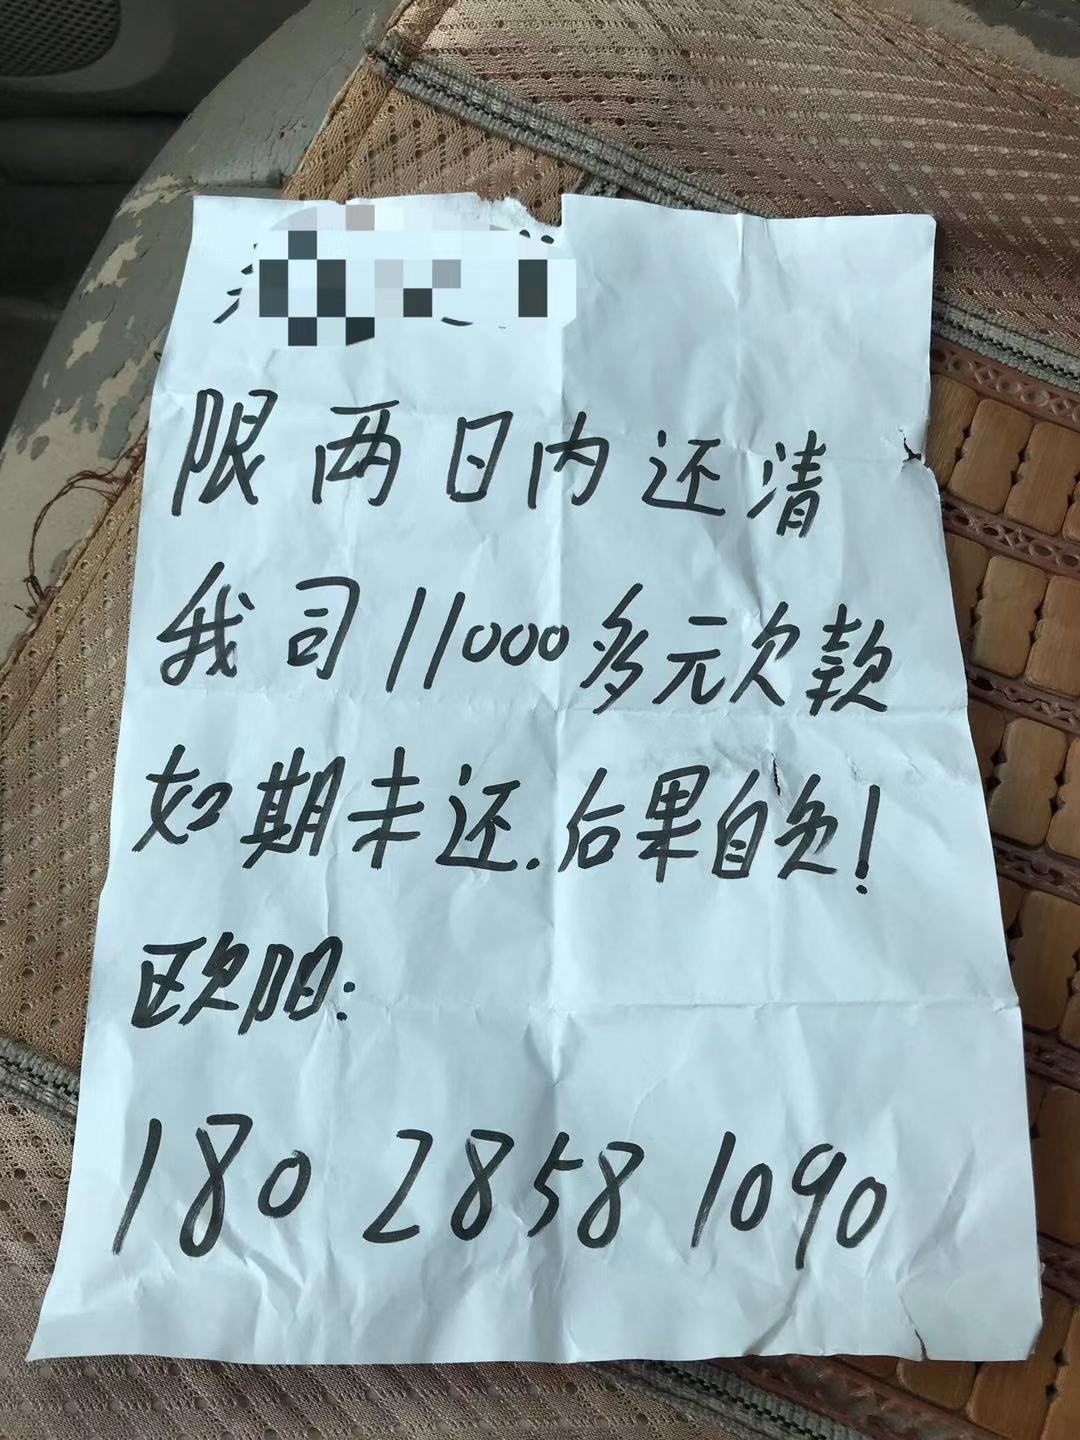 限两日内还清
我司11000多元欠款
如期未还.后果自负!
欧阳:
180 2858 1090